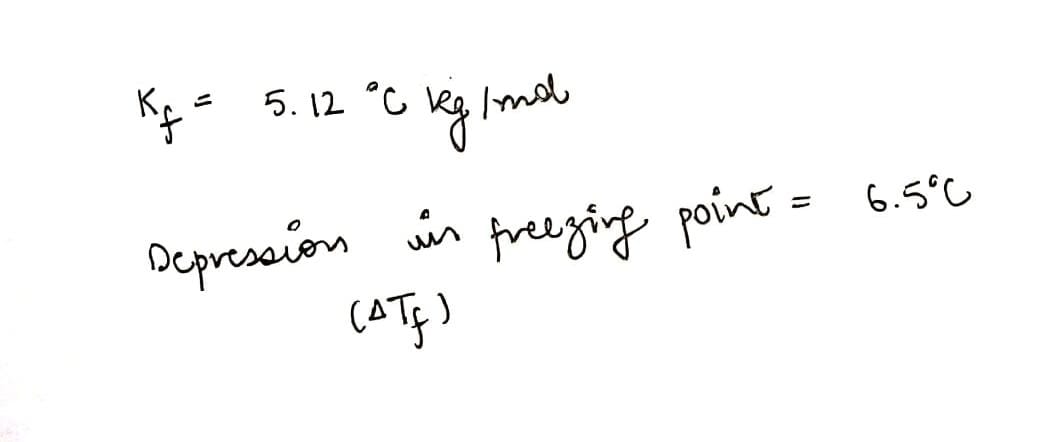 Kf = 5.12 °C kg/mol
Depression in freezing point = 6.5°C
(ΔTf)